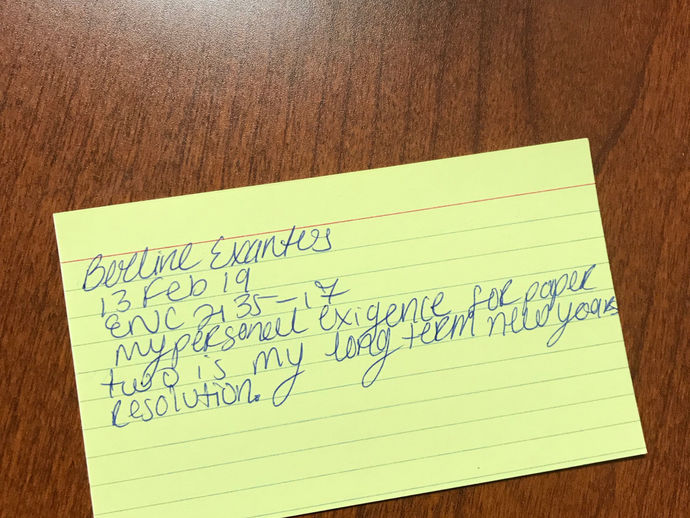 Berline Exantus
13 Feb 19
ENC 2135-17
My personal exigence for paper
two is my long term new years
resolution.